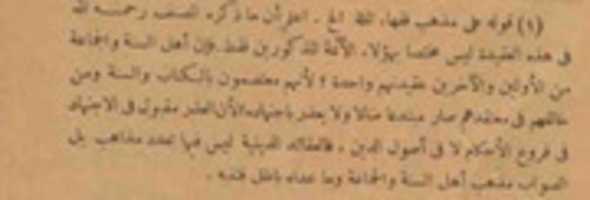 (١) قوله على مذهب فقهاء الملة الخ . اعلم أن ما ذكره المصنف رحمه الله
فى هذه العقيدة ليس مختصا بهؤلاء الأئمة المذكورين فقط، فإن أهل السنة والجماعة
من الأولين والآخرين عقيدتهم واحدة ؛ لأنهم معتصمون بالكتاب والسنة ومن
خالفهم فى معتقدهم صار مبتدعا ضالا ولا يعذر باجتهاده لأن العذر مقبول فى الاجتهاد
فى فروع الأحكام لا فى أصول الدين ، فالعقائد الدينية ليس فيها تعدد مذاهب بل
الصواب مذهب أهل السنة والجماعة وما عداه باطل